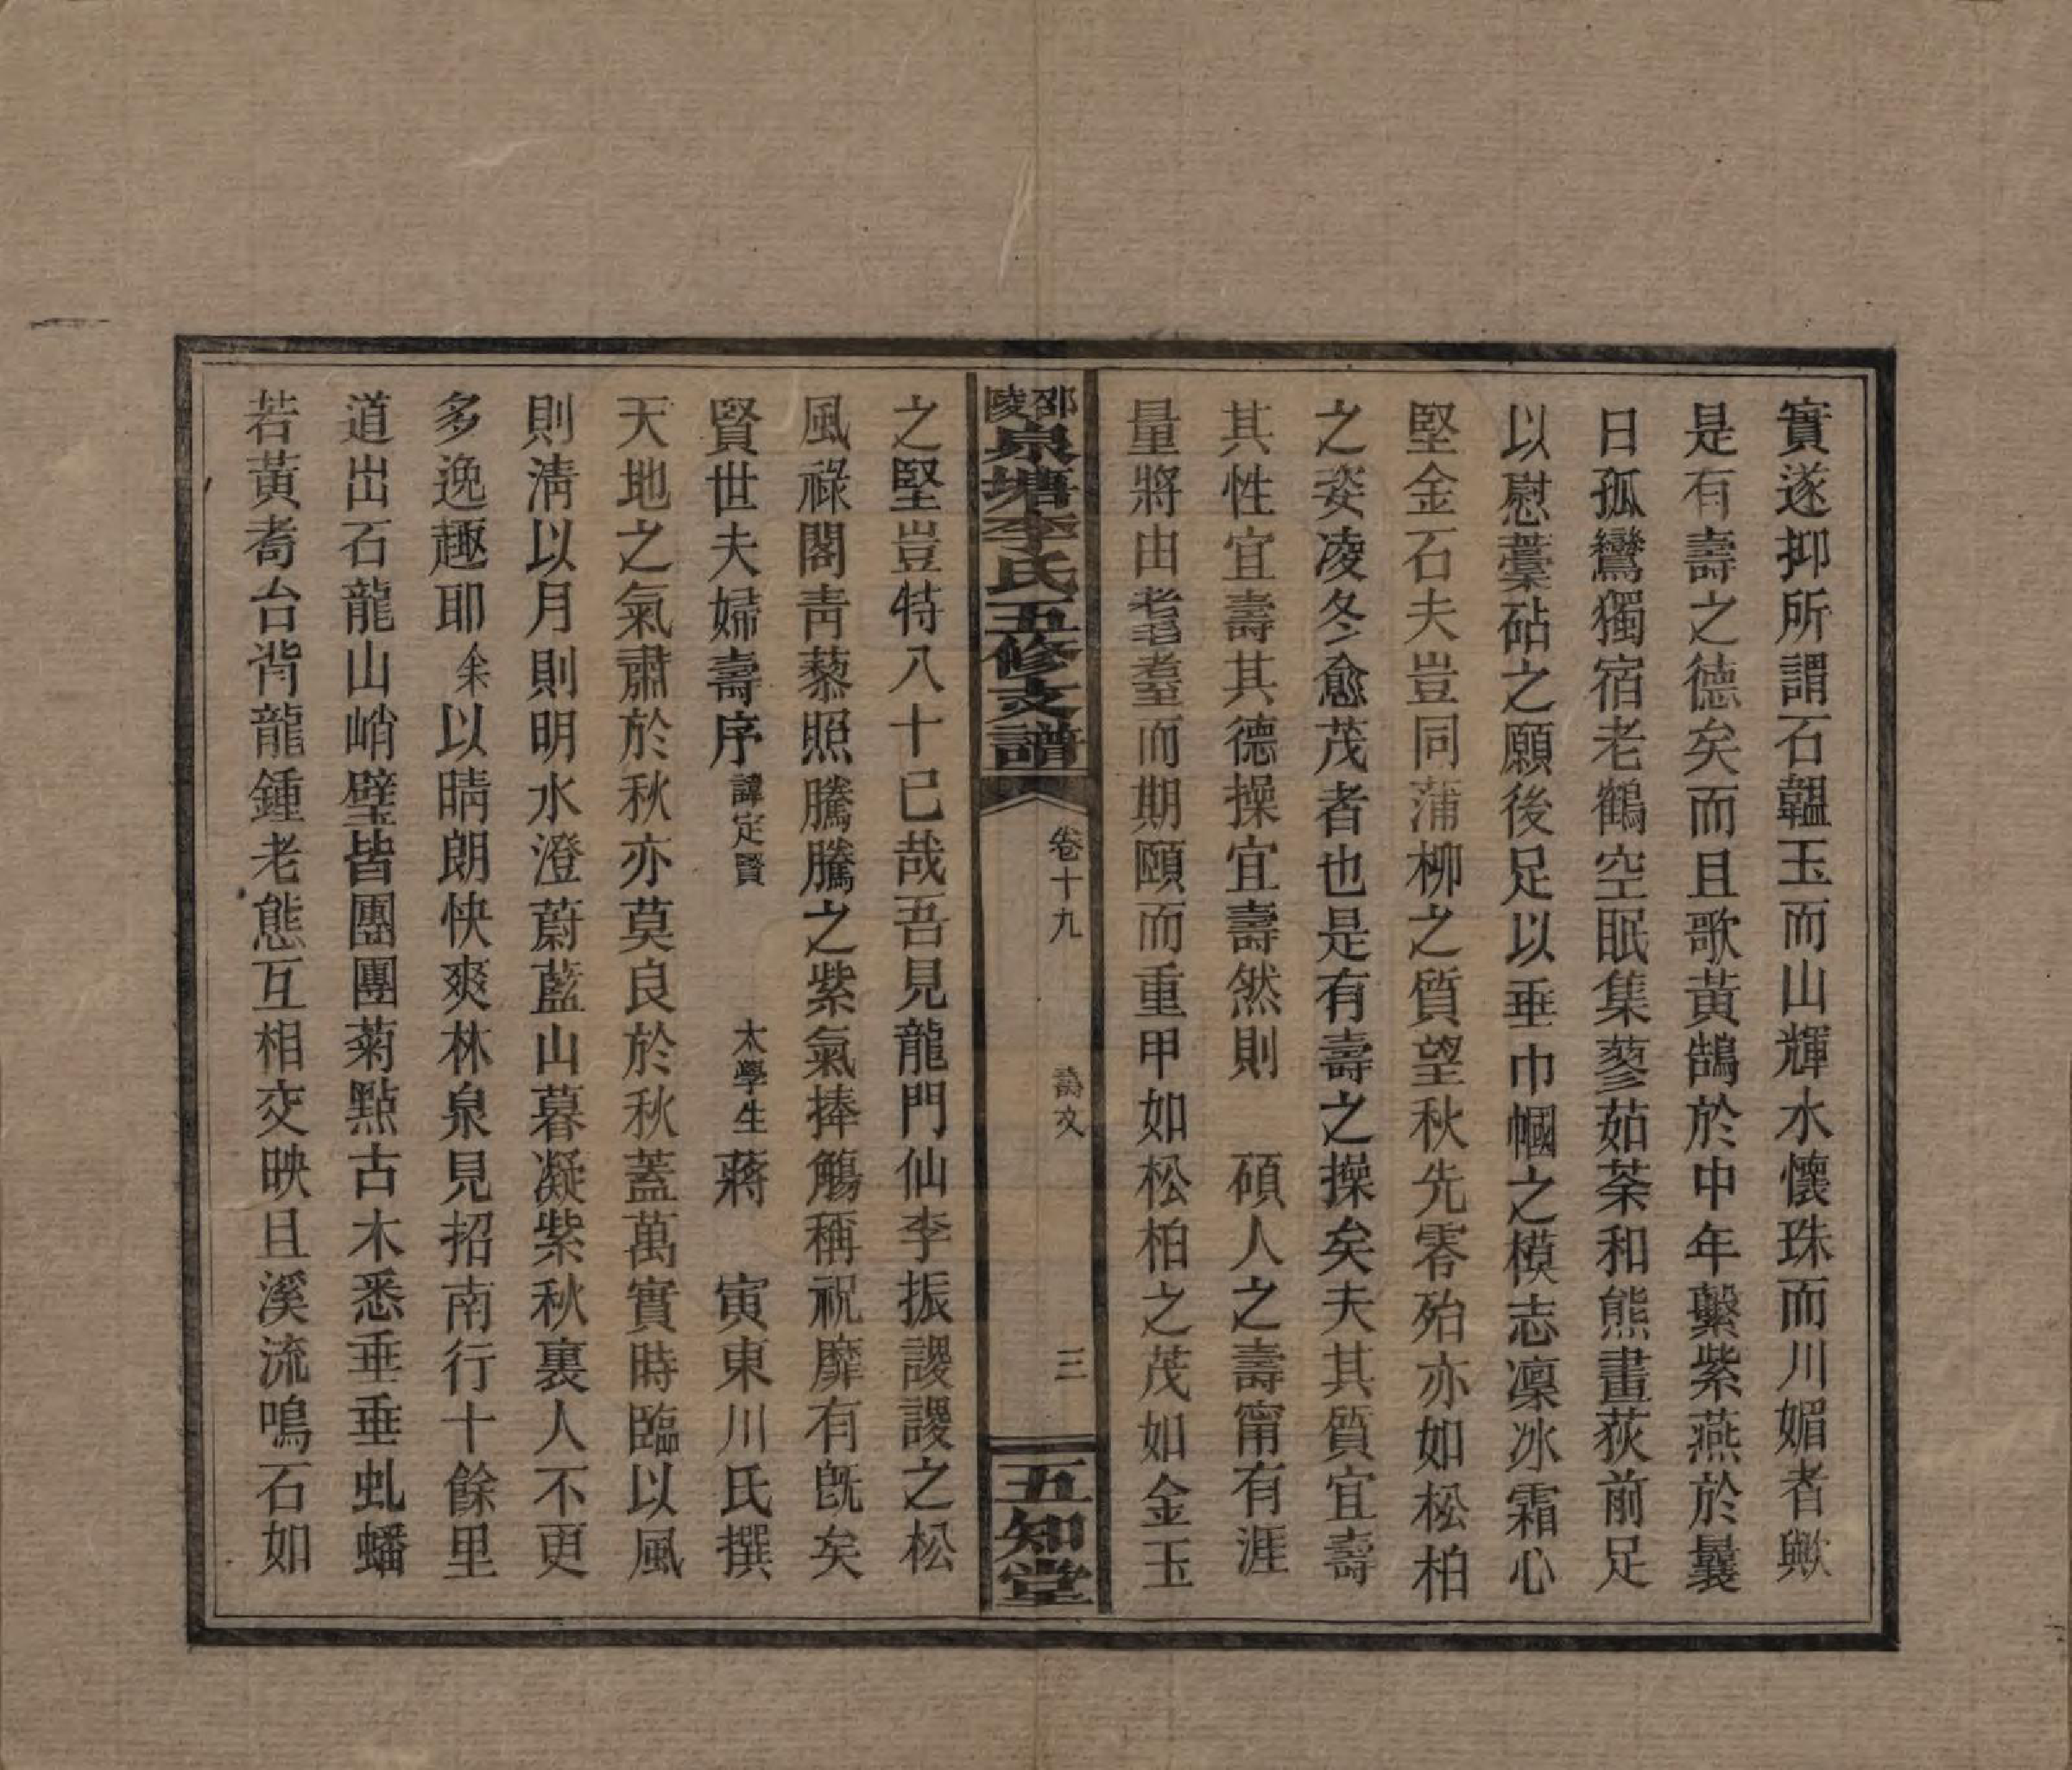 實遂抑所謂石韞玉而山輝水懷珠而川媚者歟
是有壽之德矣而且歌黃鵠於中年繫紫燕於曩
日孤鸞獨宿老鶴空眠集蓼茹荼和熊畫荻前足
以慰藁砧之願後足以垂巾幗之模志凜冰霜心
堅金石夫豈同蒲柳之質望秋先零殆亦如松柏
之姿凌冬愈茂者也是有壽之操矣夫其質宜壽
其性宜壽其德操宜壽然則　碩人之壽甯有涯
量將由耄耋而期頤而重甲如松柏之茂如金玉
邵陵泉塘李氏五修支譜　卷十九　壽文　三　五知堂
之堅豈特八十已哉吾見龍門仙李振謖謖之松
風祿閣青藜照騰騰之紫氣捧觴稱祝靡有旣矣
賢世夫婦壽序諱定賢　太學生蔣　寅東川氏撰
天地之氣肅於秋亦莫良於秋蓋萬寶時臨以風
則淸以月則明水澄蔚藍山暮凝紫秋裏人不更
多逸趣耶余以晴朗快爽林泉見招南行十餘里
道出石龍山峭壁皆團團菊點古木悉垂垂虬蟠
若黃耇台背龍鍾老態互相交映且溪流鳴石如